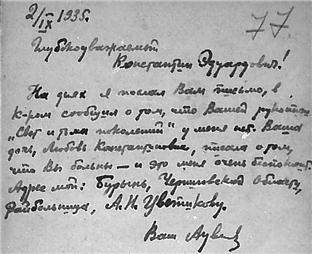 2/IX 1935.
77.
Глубокоуважаемый
Константин Эдуардович!
На днях я послал Вам письмо, в
к-ром сообщил о том, что Вашей рукописи
"Свет и тьма поколений" у меня нет. Ваша
дочь, Любовь Константиновна, писала о том,
что Вы больны — и это меня очень беспокоит.
Адрес мой: Бурынь, Черниговской области,
Райбольница, А. И. Цветикову.
Ваш